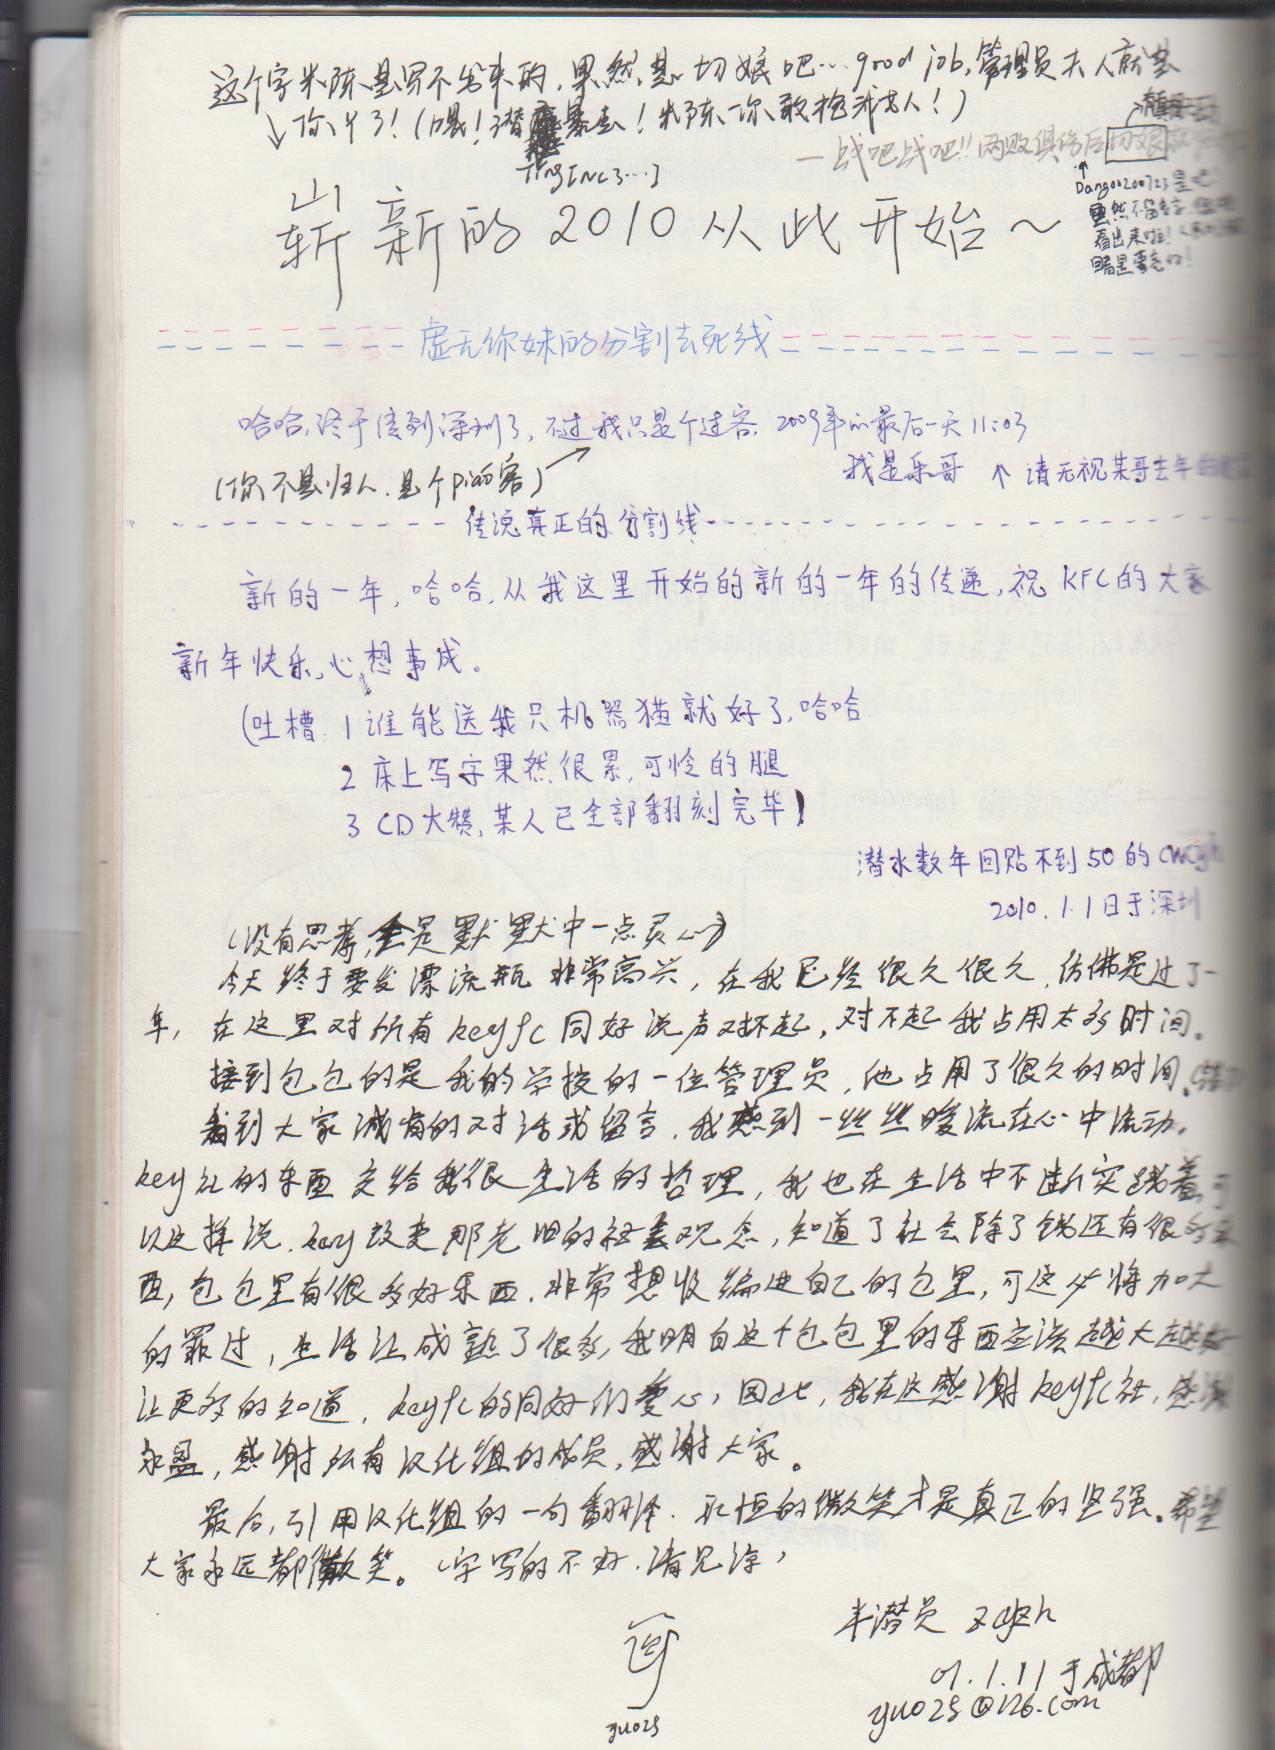 这个字米陈是写不出来的,果然,是切娘吧…good job,管理员夫人就是
↓你丫了!(喂!潜 暴去!米陈你敢抢我老人!)
—战吧战吧!!两败俱伤后切娘
TingINC3…]
Dango200723是吧!
虽然不留言,但
看出来啦!
崭新的2010从此开始~
虚无你妹的分割去死线
哈哈,终于传到深圳了,不过我只是个过客. 2009年的最后一天11:03
我是乐哥 ↑ 请无视某哥去年的
(你不是归人,是个piao客)
传说真正的分割线
新的一年,哈哈,从我这里开始的新的一年的传递,祝KFC的大家
新年快乐,心想事成。
(吐槽:1 谁能送我只机器猫就好了,哈哈
2 床上写字果然很累,可怜的腿
3 CD大赞,某人已全部翻刻完毕)
潜水数年回贴不到50的cwcyh
2010.1.1日于深圳
(没有思考,全是默默中一点灵心)
今天终于要发漂流瓶非常高兴,在我已经很久很久,仿佛是过了一
年,在这里对所有keyfc同好说声对不起,对不起我占用太多时间。
接到包包的是我的学校的一位管理员,他占用了很久的时间.
看到大家诚肯的对话或留言,我感到一丝丝暖流在心中流动。
key社的东西交给我很生活的哲理,我也在生活中不断实践着,可
以这样说,key改变那老旧的社会观念,知道了社会除了钱还有很多东
西,包包里有很多好东西,非常想收编进自己的包里,可这必将加大
的罪过,生活让成熟了很多,我明白这个包包里的东西应该越大越好
让更多的知道,keyfc的同好们爱心,因此,我在这感谢keyfc社,感谢
永盈,感谢所有汉化组的成员,感谢大家。
最后,引用汉化组的一句翻译.永恒的微笑才是真正的坚强。希望
大家永远都微笑。(字写的不好.请见谅)
半潜员 zcyzh
01.1.11于成都
yuo2s@126.com
yuo2s